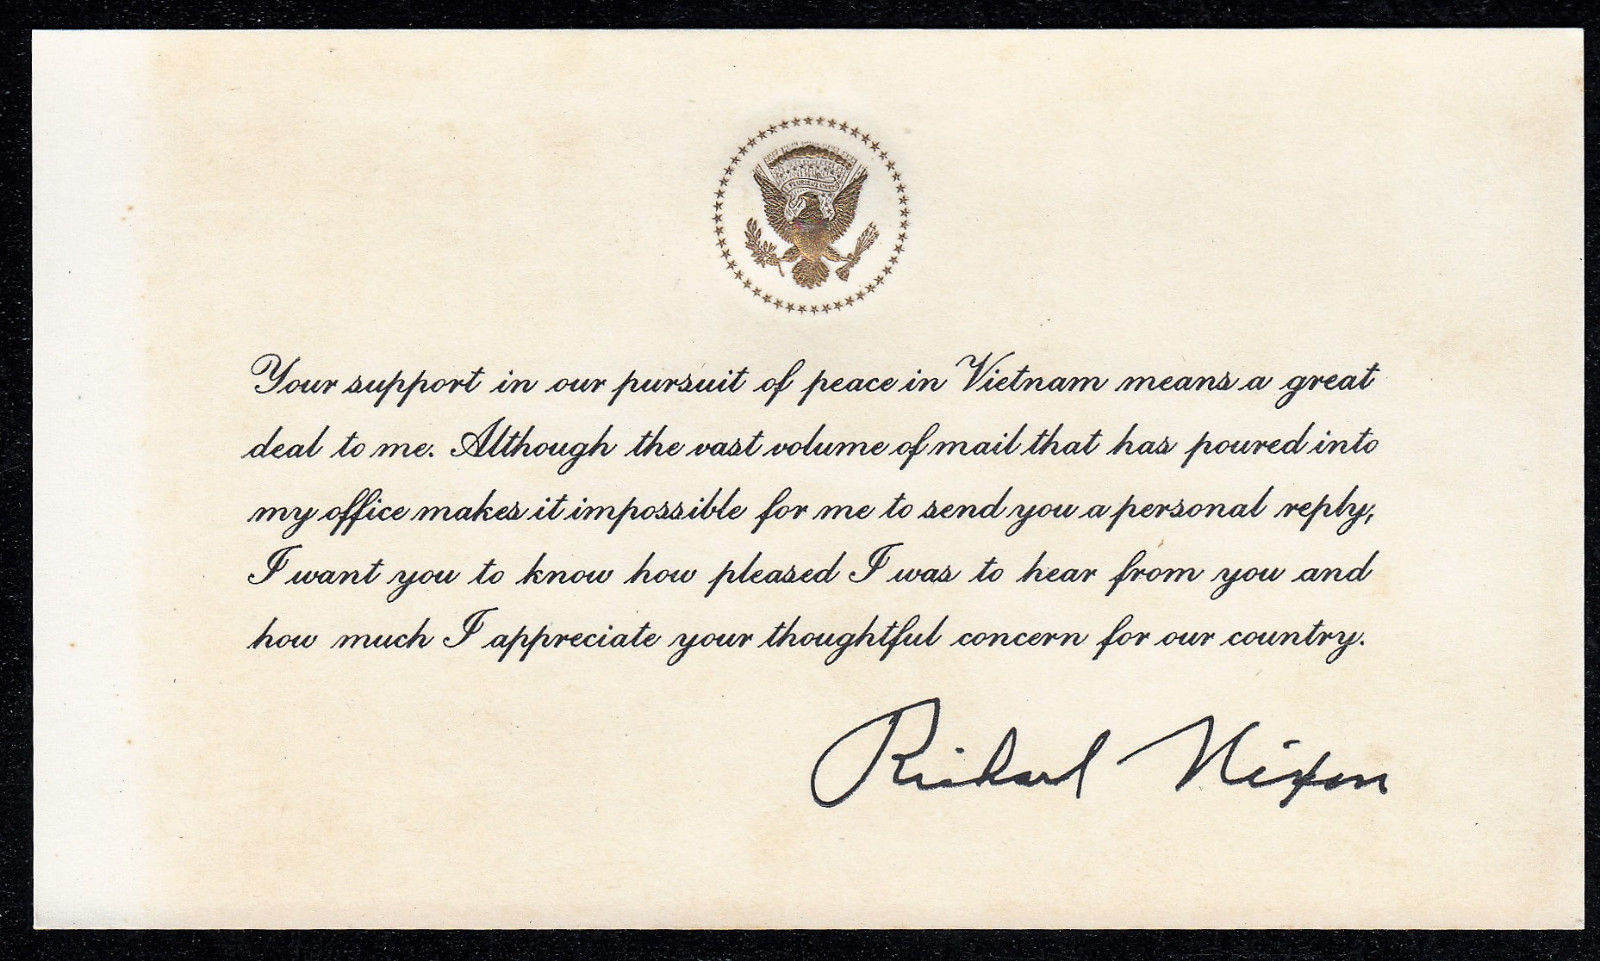 Your support in our pursuit of peace in Vietnam means a great
deal to me. Although the vast volume of mail that has poured into
my office makes it impossible for me to send you a personal reply,
I want you to know how pleased I was to hear from you and
how much I appreciate your thoughtful concern for our country.
Richard Nixon